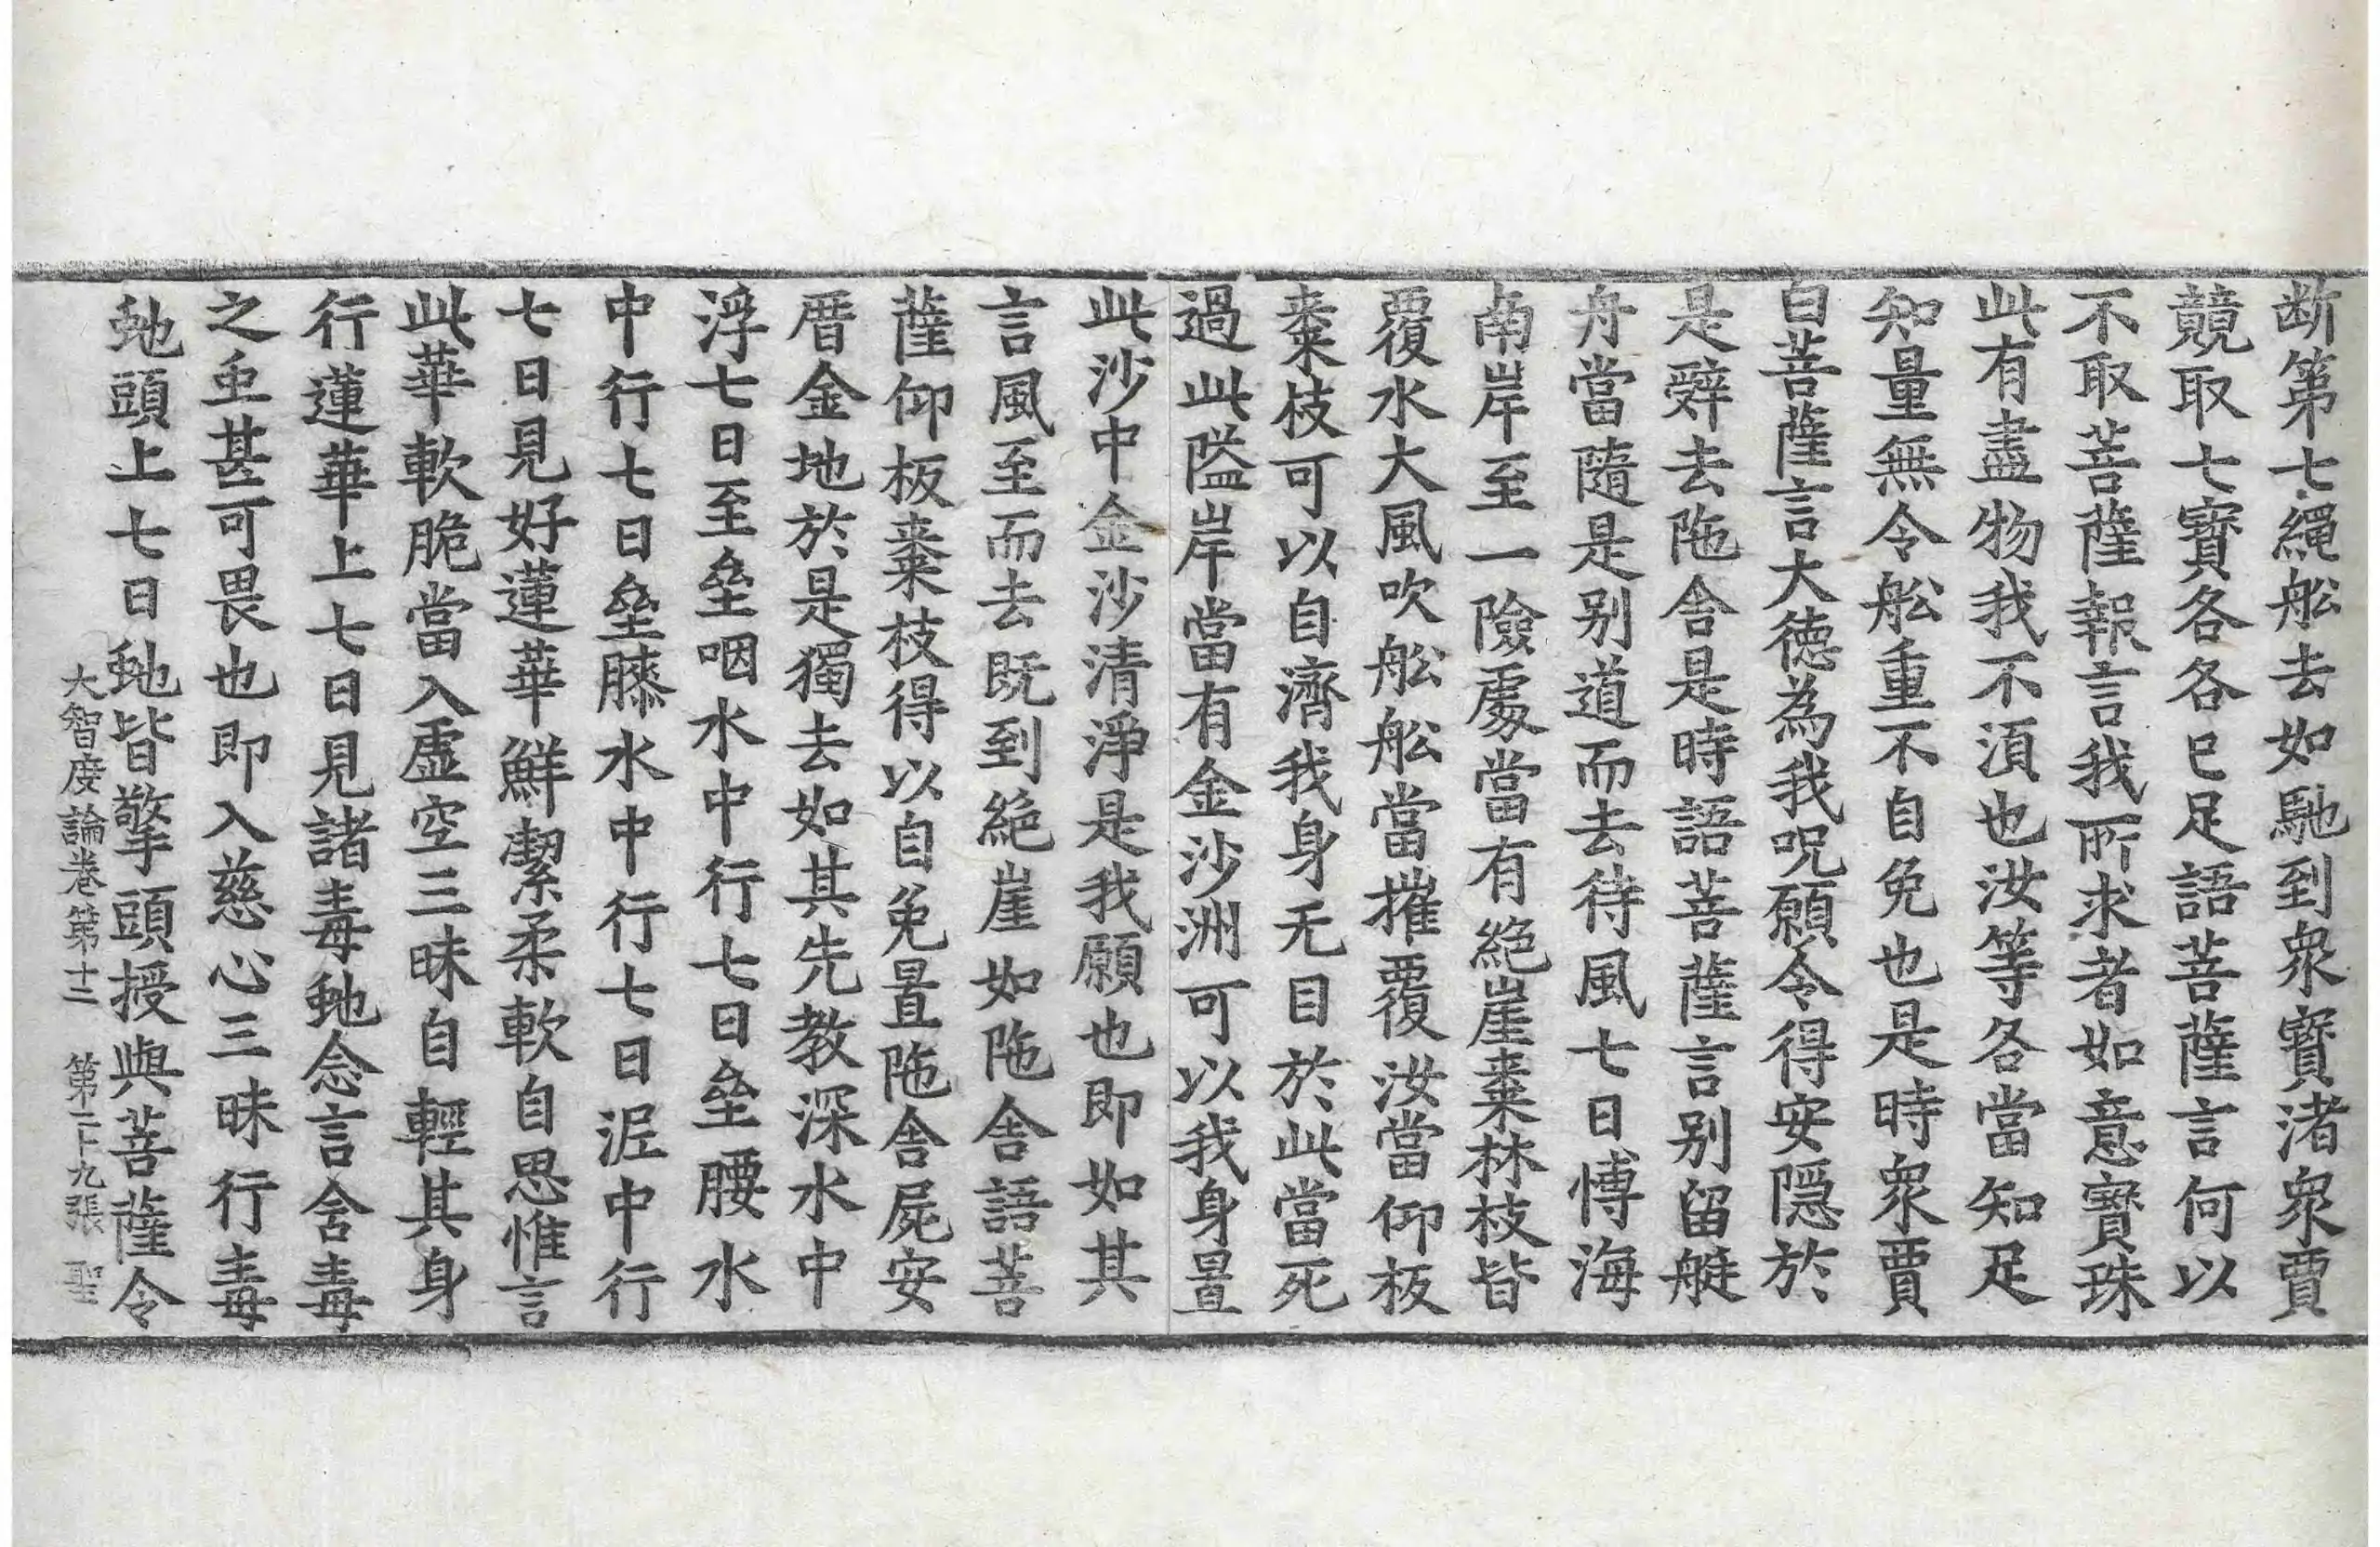 断第七繩舩去如馳到衆寶渚衆賈
競取七寶各各已足語菩薩言何以
不取菩薩報言我所求者如意寶珠
此有盡物我不湏也汝等各當知足
知量無令舩重不自免也是時衆賈
白菩薩言大德為我呪願令得安隱於
是辝去陁舍是時語菩薩言别留艇
舟當隨是别道而去待風七日愽海
南岸至一險處當有絶崖棗林枝皆
覆水大風吹舩舩當摧覆汝當仰板
棗枝可以自濟我身无目於此當死
過此隘岸當有金沙洲可以我身置
此沙中金沙清淨是我願也即如其
言風至而去既到絶崖如陁舍語菩
薩仰板棗枝得以自免置陁舍屍安
厝金地於是獨去如其先教深水中
浮七日至垒咽水中行七日垒腰水
中行七日垒膝水中行七日泥中行
七日見好蓮華鮮潔柔軟自思惟言
此華軟脆當入虚空三昧自輕其身
行蓮華上七日見諸毒虵念言含毒
之虫甚可畏也即入慈心三昧行毒
虵頭上七日虵皆擎頭授與菩薩令
大智度論卷第十二　第二十九張　聖